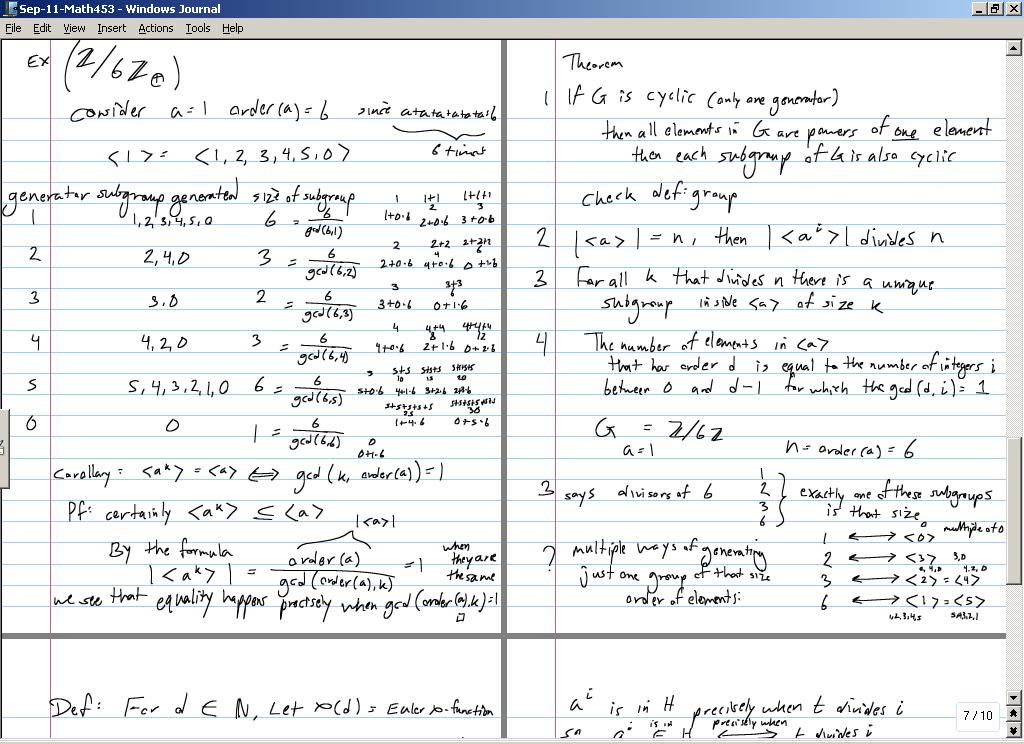 Sep-11-Math453 - Windows Journal
File Edit View Insert Actions Tools Help
Ex (ℤ/6ℤ⊕)
consider a=1 order(a)=6 since a+a+a+a+a+a=6
6 times
<1> = <1, 2, 3, 4, 5, 0>
generator subgroup generated size of subgroup
1 1+1 1+1+1
2 3
1 1,2,3,4,5,0 6 = 6/gcd(6,1) 1+0·6 2+0·6 3+0·6
2 2+2 2+2+2
4 6
2 2,4,0 3 = 6/gcd(6,2) 2+0·6 4+0·6 0+1·6
3 3+3
6
3 3,0 2 = 6/gcd(6,3) 3+0·6 0+1·6
4 4+4 4+4+4
8 12
4 4,2,0 3 = 6/gcd(6,4) 4+0·6 2+1·6 0+2·6
5 5+5 5+5+5 5+5+5+5
10 15 20
5 5,4,3,2,1,0 6 = 6/gcd(6,5) 5+0·6 4+1·6 3+2·6 2+3·6
5+5+5+5+5 5+5+5+5+5+5
25 30
1+4·6 0+5·6
0 0 1 = 6/gcd(6,6) 0
0+1·6
Corollary: <a^k> = <a> ⟺ gcd(k, order(a))=1
Pf: certainly <a^k> ≤ <a>
|<a>|
By the formula
|<a^k>| = order(a)/gcd(order(a),k) = 1 when they are the same
we see that equality happens precisely when gcd(order(a),k)=1
□
Def: For d ∈ ℕ, Let φ(d) = Euler φ-function
Theorem
1 If G is cyclic (only one generator)
then all elements in G are powers of one element
then each subgroup of G is also cyclic
check def: group
2 |<a>| = n, then |<a^i>| divides n
3 For all k that divides n there is a unique
subgroup inside <a> of size k
4 The number of elements in <a>
that has order d is equal to the number of integers i
between 0 and d-1 for which the gcd(d,i) = 1
G = ℤ/6ℤ
a=1 n=order(a)=6
3 says divisors of 6 1 2 3 6 } exactly one of these subgroups
is that size
0 multiple of 0
1 ⟷ <0>
? multiple ways of generating 2 ⟷ <3> 3,0
2,4,0 4,2,0
just one group of that size 3 ⟷ <2> = <4>
order of elements: 6 ⟷ <1> = <5>
1,2,3,4,5 5,4,3,2,1
a^i is in H precisely when t divides i
so a^i ∈ H ⟷ t divides i
is in precisely when
7 / 10